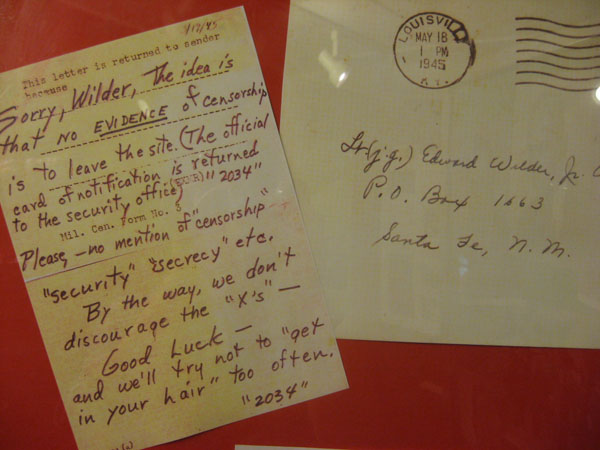 This letter is returned to sender
because
Sorry, Wilder, The idea is
that no EVIDENCE of censorship
is to leave the site. (The official
card of notification is returned
to the security office) "2034"
Mil. Cen. Form No.
Please, - no mention of "censorship"
"security" "secrecy" etc.
By the way, we don't
discourage the "X's" —
Good Luck —
and we'll try not to "get
in your hair" too often.
"2034"
LOUISVILLE
MAY 18
1 PM
1945
KY.
Lt(j.g.) Edward Wilder, Jr.
P.O. Box 1663
Santa Fe, N.M.